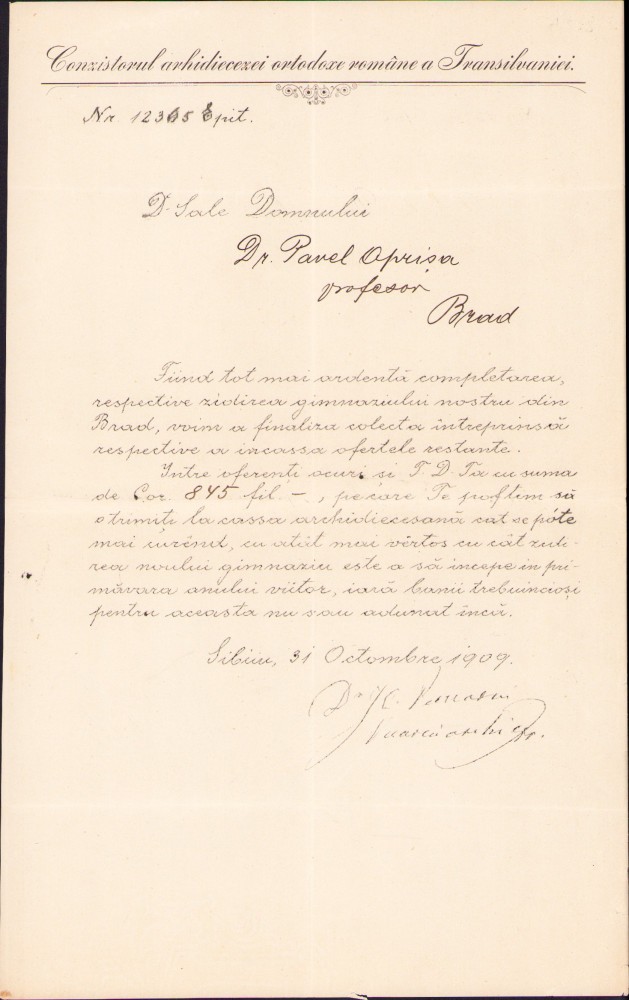 Conzistorul arhidiecezei ortodoxe române a Transilvaniei.
Nr 12365 Epit.
D-Sale Domnului
Dr. Pavel Oprișa
profesor
Brad
Fiind tot mai ardentă completarea,
respective zidirea gimnaziului nostru din
Brad, voim a finaliza colecta întreprinsă
respective a incassa ofertele restante.
Între oferenți ocuri și T. D-Ta cu suma
de Cor. 845 fil. – , pe care Te poftim să
o trimiți la cassa archidiecesană cat se póte
mai curênd, cu atât mai vêrtos cu cât zidi-
rea noului gimnaziu este a să incepe in pri-
măvara anului viitor, iară banii trebuincioși
pentru aceasta nu s-au adunat încă.
Sibiiu, 31 Octombre 1909.
Dr